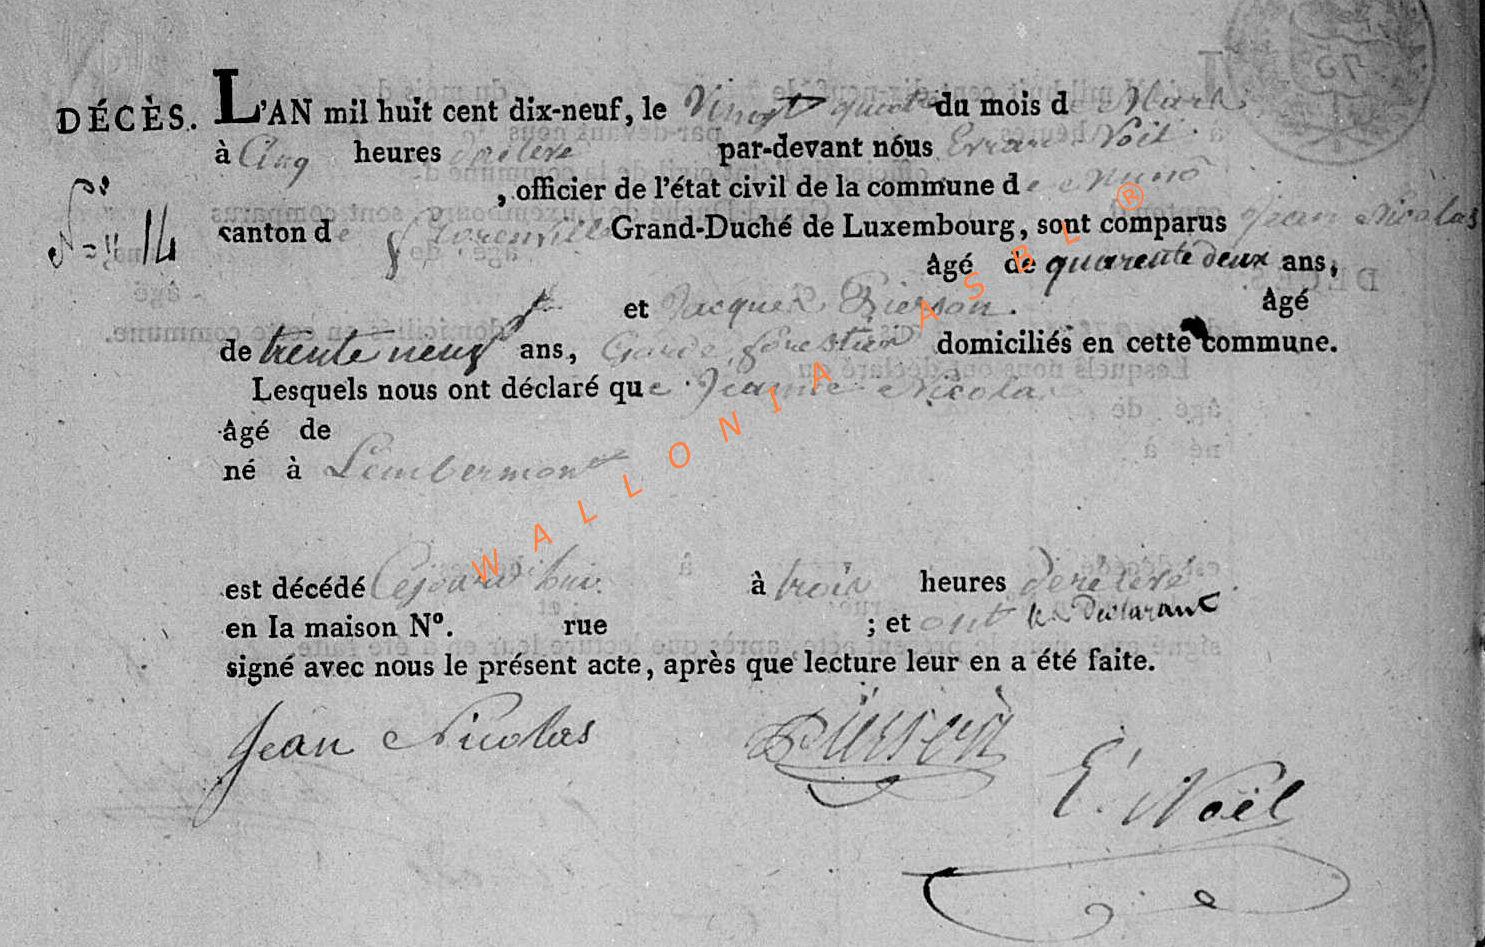 DÉCÈS. L'AN mil huit cent dix-neuf, le Vingt du mois de Mars
à Cinq heures par-devant nous Noël
, officier de l'état civil de la commune de Muno
N° 14 canton de florenville Grand-Duché de Luxembourg, sont comparus Jean Nicolas
âgé de quarente deux ans,
et Jacques Pierson. âgé
de trente neuf ans, Garde forestier domiciliés en cette commune.
Lesquels nous ont déclaré que Jeanne Nicolas
âgé de
né à Lambermont
est décédé Cejourd'hui à trois heures
en la maison N°. rue ; et ont les declarant
signé avec nous le présent acte, après que lecture leur en a été faite.
Jean Nicolas Pierson
E. Noël
WALLONIA ASBL ®